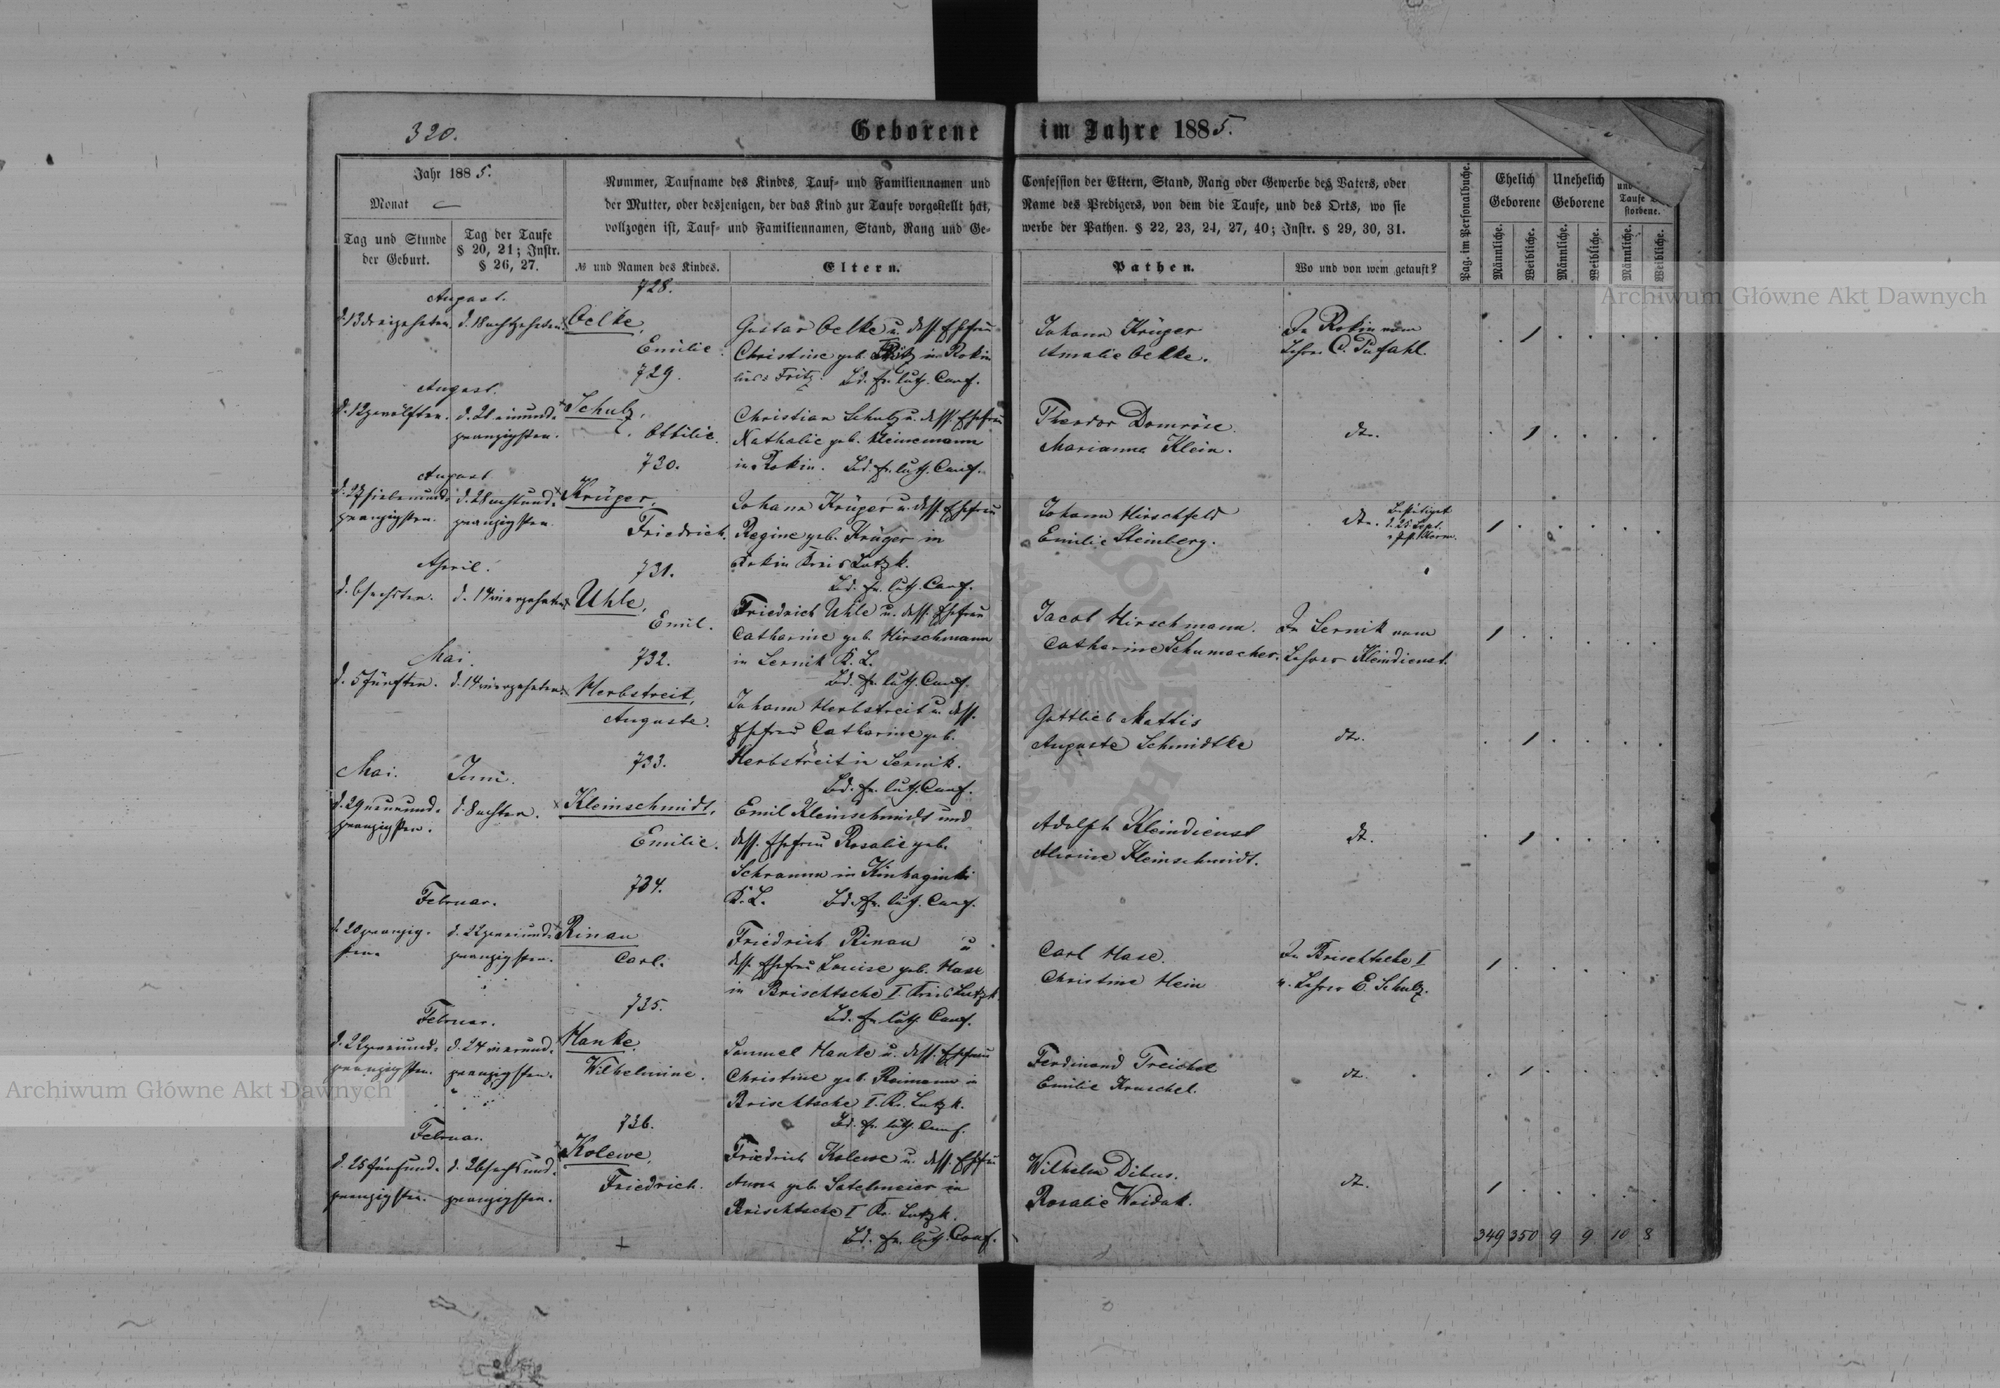 320.
Geborene im Jahre 1885.
Jahr 1885.
Monat
Nummer, Taufname des Kindes, Tauf- und Familiennamen und
der Mutter, oder desjenigen, der das Kind zur Taufe vorgestellt hat,
vollzogen ist, Tauf- und Familiennamen, Stand, Rang und Ge-
Confession der Eltern, Stand, Rang oder Gewerbe des Vaters, oder
Name des Predigers, von dem die Taufe, und des Orts, wo sie
werbe der Pathen. § 22, 23, 24, 27, 40; Instr. § 29, 30, 31.
Tag und Stunde
der Geburt.
Tag der Taufe
§ 20, 21; Instr.
§ 26, 27.
№ und Namen des Kindes.
Eltern.
Pathen.
Wo und von wem getauft?
Pag. im Personalbuche.
Ehelich
Geborene
Unehelich
Geborene
Taufe
storbene.
Männliche.
Weibliche.
Männliche.
Weibliche.
Männliche.
Weibliche.
August.
d. 13 dreizehnten.
d. 18 achtzehnten.
728.
Oelke,
Emilie.
Gustav Oelke u. dess. Ehefrau
Christine geb. in Rokin
Fritz. Bd. ev. luth. Conf.
Johann Krüger
Amalie Oelke.
In Rokin vom
Lehrer C. Pufahl.
August.
d. 12 zwölften.
d. 21 einund-
zwanzigsten.
729.
Schulz,
Ottilie.
Christian Schulz u. dess. Ehefrau
Nathalie geb. Heinemann
in Rokin. Bd. ev. luth. Conf.
Theodor Domröse
Marianna Klein.
dto.
August.
d. 27 siebenund-
zwanzigsten.
d. 28 achtund-
zwanzigsten.
730.
Krüger,
Friedrich.
Johann Krüger u. dess. Ehefrau
Regine geb. Krüger in
Rokin Kreis Lutzk.
Bd. ev. luth. Conf.
Johann Hirschfeld
Emilie Steinberg.
dto.
Bestätigt
d. 25 Sept.
April.
d. 6 sechsten.
d. 14 vierzehnten.
731.
Uhle,
Emil.
Friedrich Uhle u. dess. Ehefrau
Catharine geb. Hirschmann
in Sernik K. L.
Bd. ev. luth. Conf.
Jacob Hirschmann.
Catharine Schumacher.
In Sernik vom
Lehrer Kleindienst.
Mai.
d. 5 fünften.
d. 14 vierzehnten.
732.
Herbstreit,
Auguste.
Johann Herbstreit u. dess.
Ehefrau Catharine geb.
Herbstreit in Sernik.
Bd. ev. luth. Conf.
Gottlieb Mattis
Auguste Schmidtke
dto.
Mai.
Juni.
d. 29 neunund-
zwanzigsten.
d. 8 achten.
733.
Kleinschmidt,
Emilie.
Emil Kleinschmidt und
dess. Ehefrau Rosalie geb.
Schramm in
K. L. Bd. ev. luth. Conf.
Adolph Kleindienst
Kleinschmidt.
dt.
Februar.
d. 20 zwanzig-
sten
d. 22 zweiund-
zwanzigsten.
734.
Rinau
Carl.
Friedrich Rinau u
dess. Ehefrau Louise geb. Hase
in Brischtsche I Kreis Lutzk
Bd. ev. luth. Conf.
Carl Hase.
Christine Hein
In Brischtsche I
v. Lehrer E. Schulz.
Februar.
d. 22 zweiund-
zwanzigsten.
d. 24 vierund-
zwanzigsten.
735.
Hanke,
Wilhelmine.
Samuel Hanke u. dess. Ehefrau
Christine geb. Reimann in
Brischtsche I. Kr. Lutzk.
Bd. ev. luth. Conf.
Ferdinand Treichel
Emilie Kruschel.
dt.
Februar.
d. 25 fünfund-
zwanzigsten.
d. 26 sechsund-
zwanzigsten.
736.
Kolewe,
Friedrich.
Friedrich Kolewe u. dess. Ehefrau
Anna geb. Satelmeier in
Brischtsche I Kr. Lutzk.
Bd. ev. luth. Conf.
Wilhelm Dibus.
Rosalie Woidak.
dt.
349 350 9 9 10 8
Archiwum Główne Akt Dawnych
Archiwum Główne Akt Dawnych